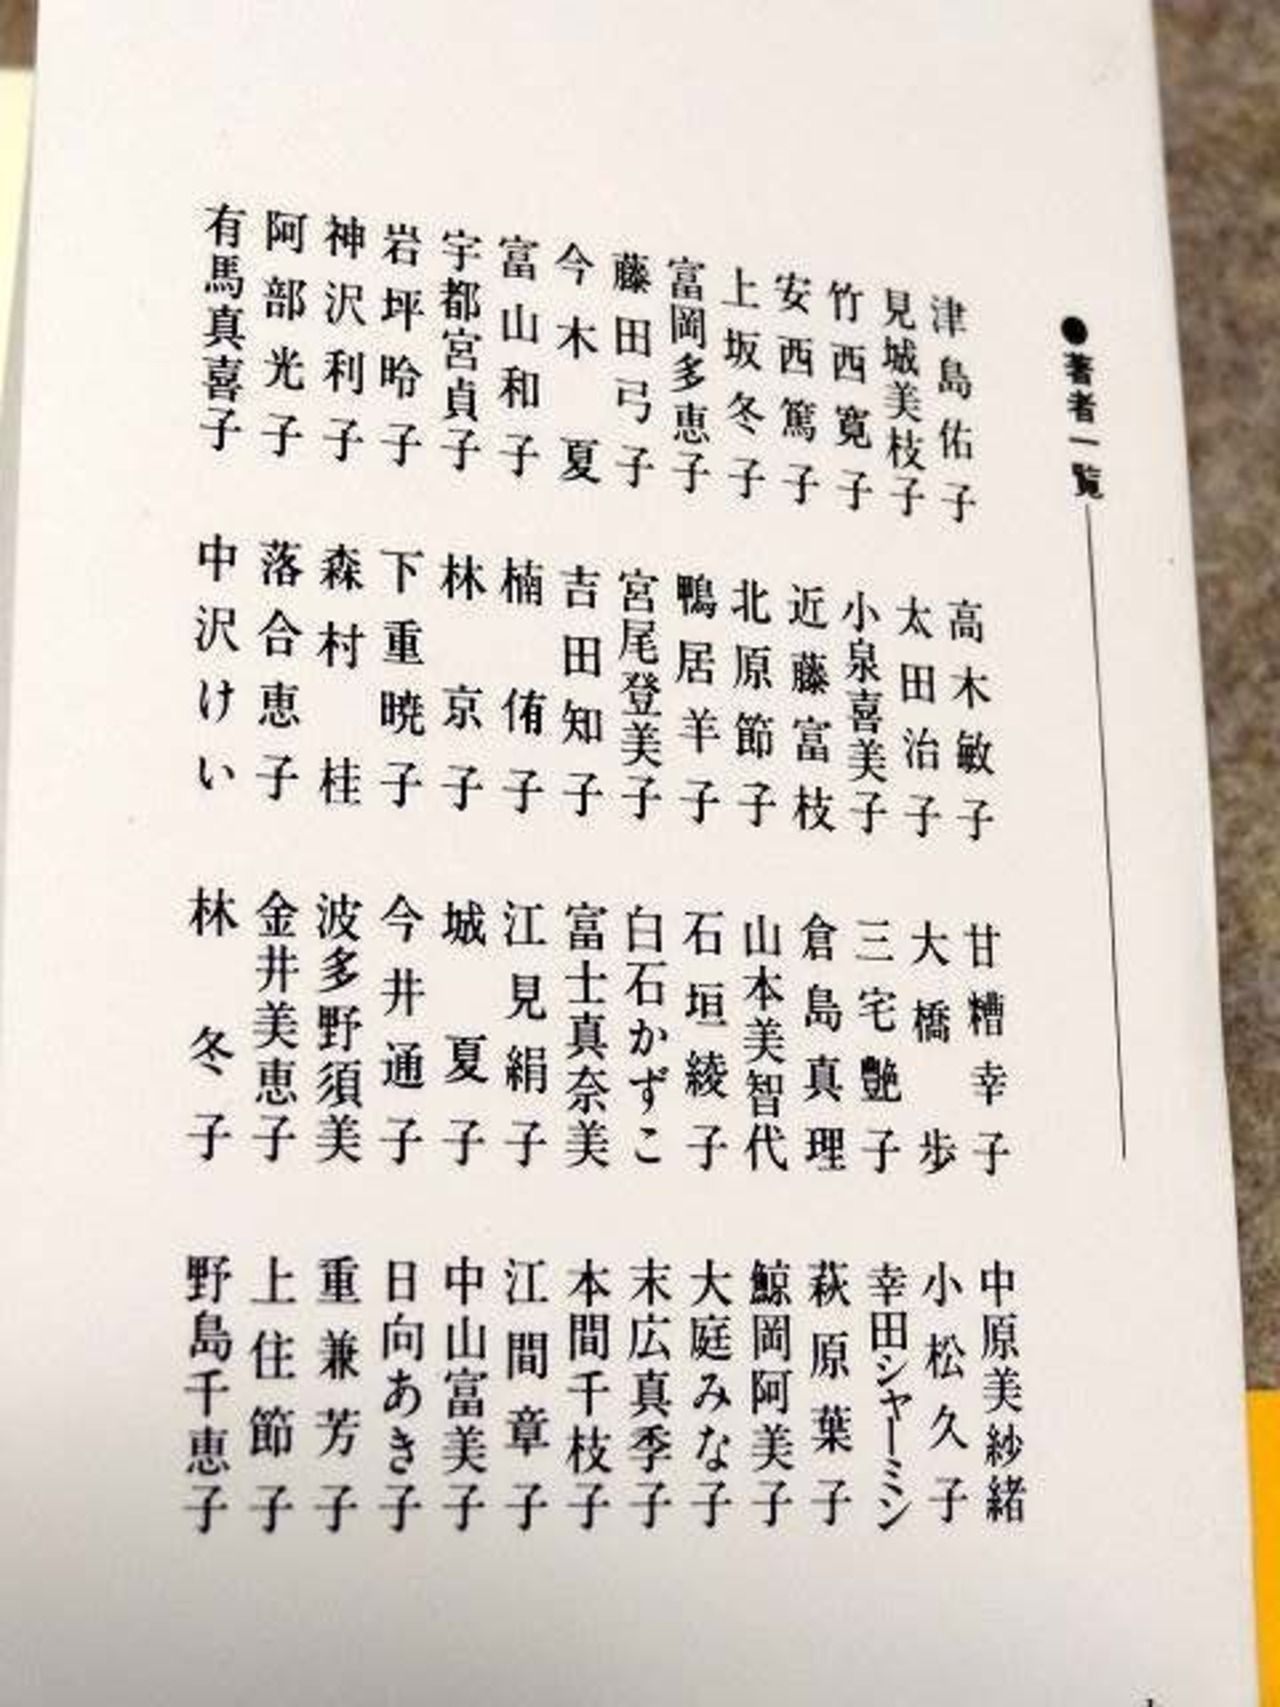 ●著者一覧
津島佑子
見城美枝子
竹西寛子
安西篤子
上坂冬子
富岡多恵子
藤田弓子
今木 夏
富山和子
宇都宮貞子
岩坪昤子
神沢利子
阿部光子
有馬真喜子
高木敏子
太田治子
小泉喜美子
近藤富枝
北原節子
鴨居羊子
宮尾登美子
吉田知子
楠 侑子
林 京子
下重暁子
森村 桂
落合恵子
中沢けい
甘糟幸子
大橋 歩
三宅艶子
倉島真理
山本美智代
石垣綾子
白石かずこ
富士真奈美
江見絹子
城 夏子
今井通子
波多野須美
金井美恵子
林 冬子
中原美紗緒
小松久子
幸田シャーミン
萩原葉子
鯨岡阿美子
大庭みな子
末広真季子
本間千枝子
江間章子
中山富美子
日向あき子
重兼芳子
上住節子
野島千恵子